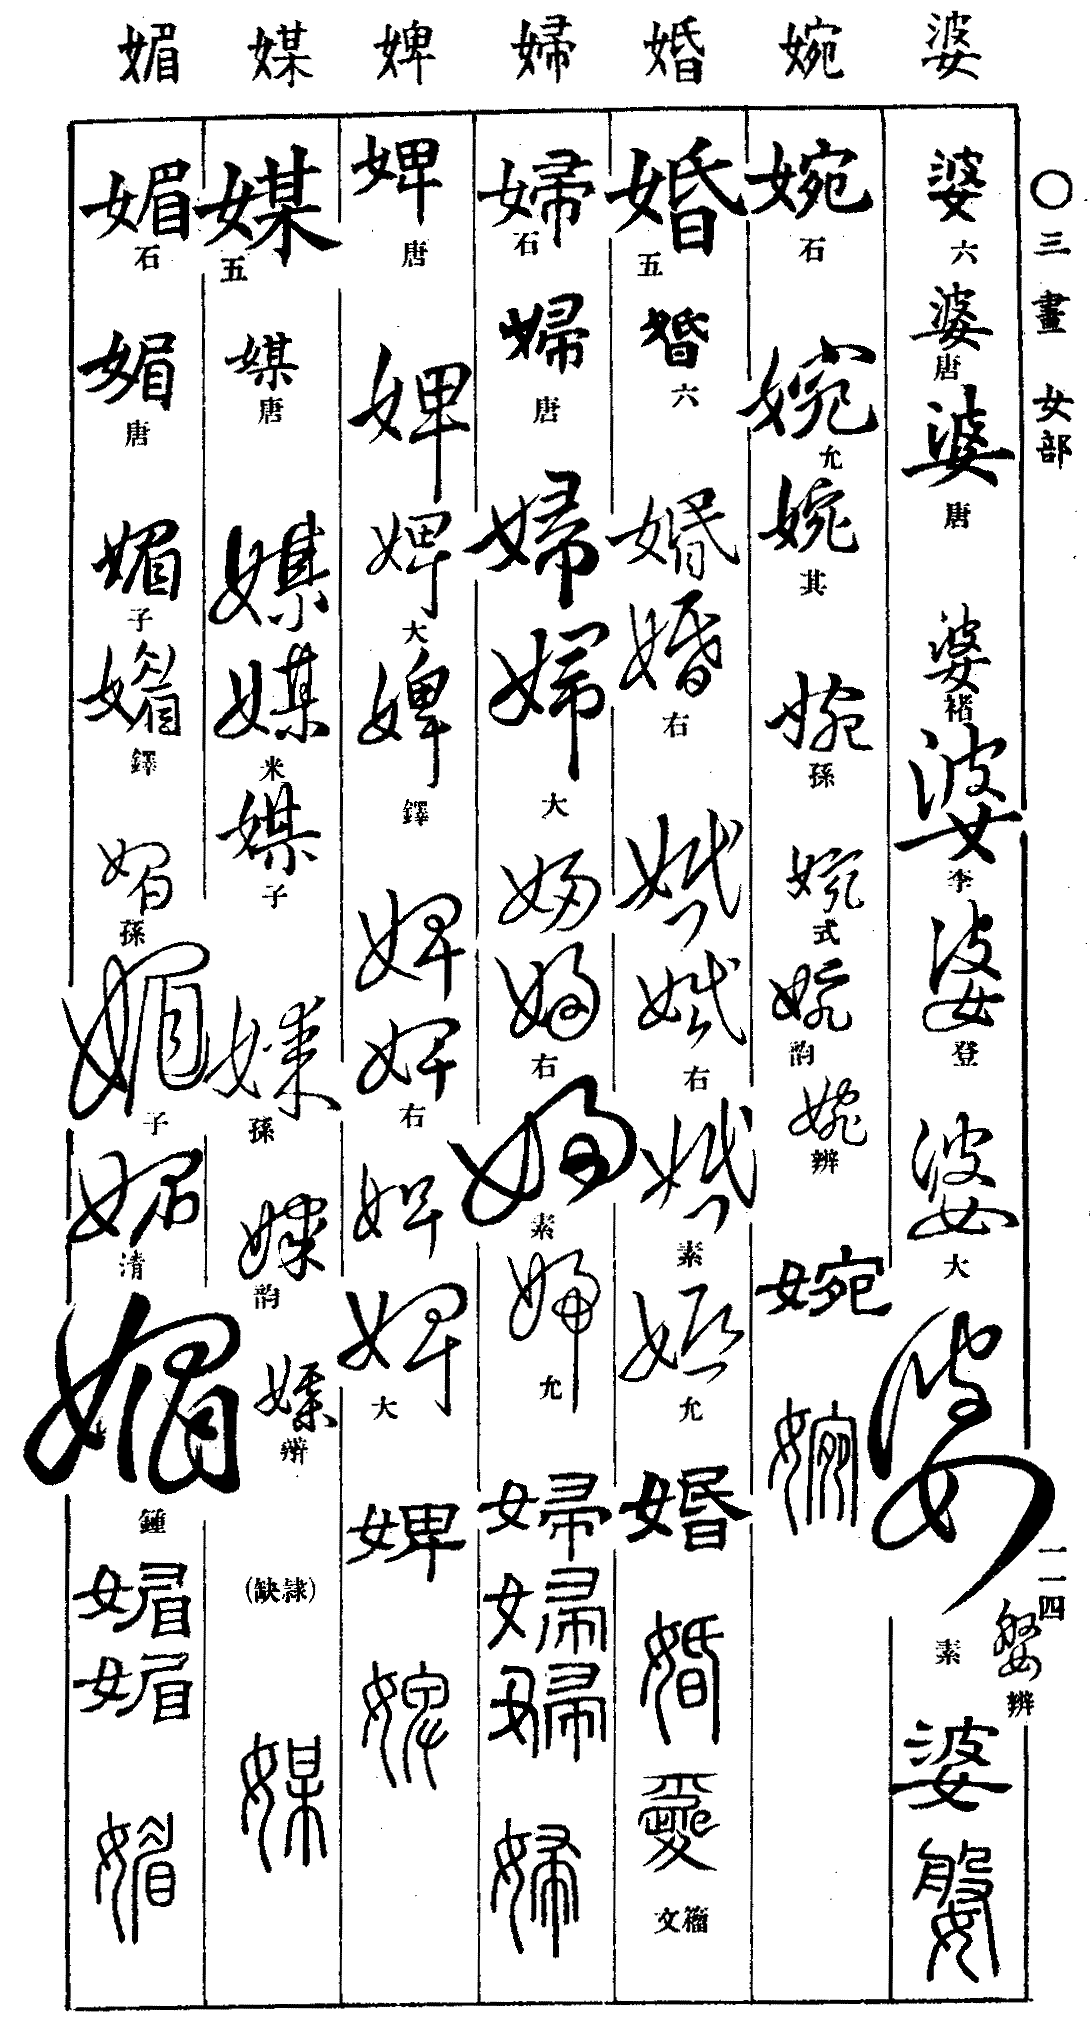 〇三畫 女部 一一四
婆 婉 婚 婦 婢 媒 媚
婆六 婆唐 婆唐 婆褚 婆李 婆登 婆大 婆素 婆辨 婆 媻
婉石 婉允 婉其 婉孫 婉式 婉韵 婉辨 婉 婉
婚五 婚六 婚 婚右 婚 婚右 婚素 婚允 婚 婚 文籀
婦石 婦唐 婦 婦大 婦 婦右 婦素 婦允 婦 婦 婦 婦
婢唐 婢 婢大 婢鐸 婢 婢右 婢 婢大 婢 婢
媒五 媒唐 媒 媒米 媒子 媒孫 媒韵 媒辨 (缺隷) 媒
媚石 媚唐 媚子 媚鐸 媚孫 媚子 媚清 媚鍾 媚 媚 媚